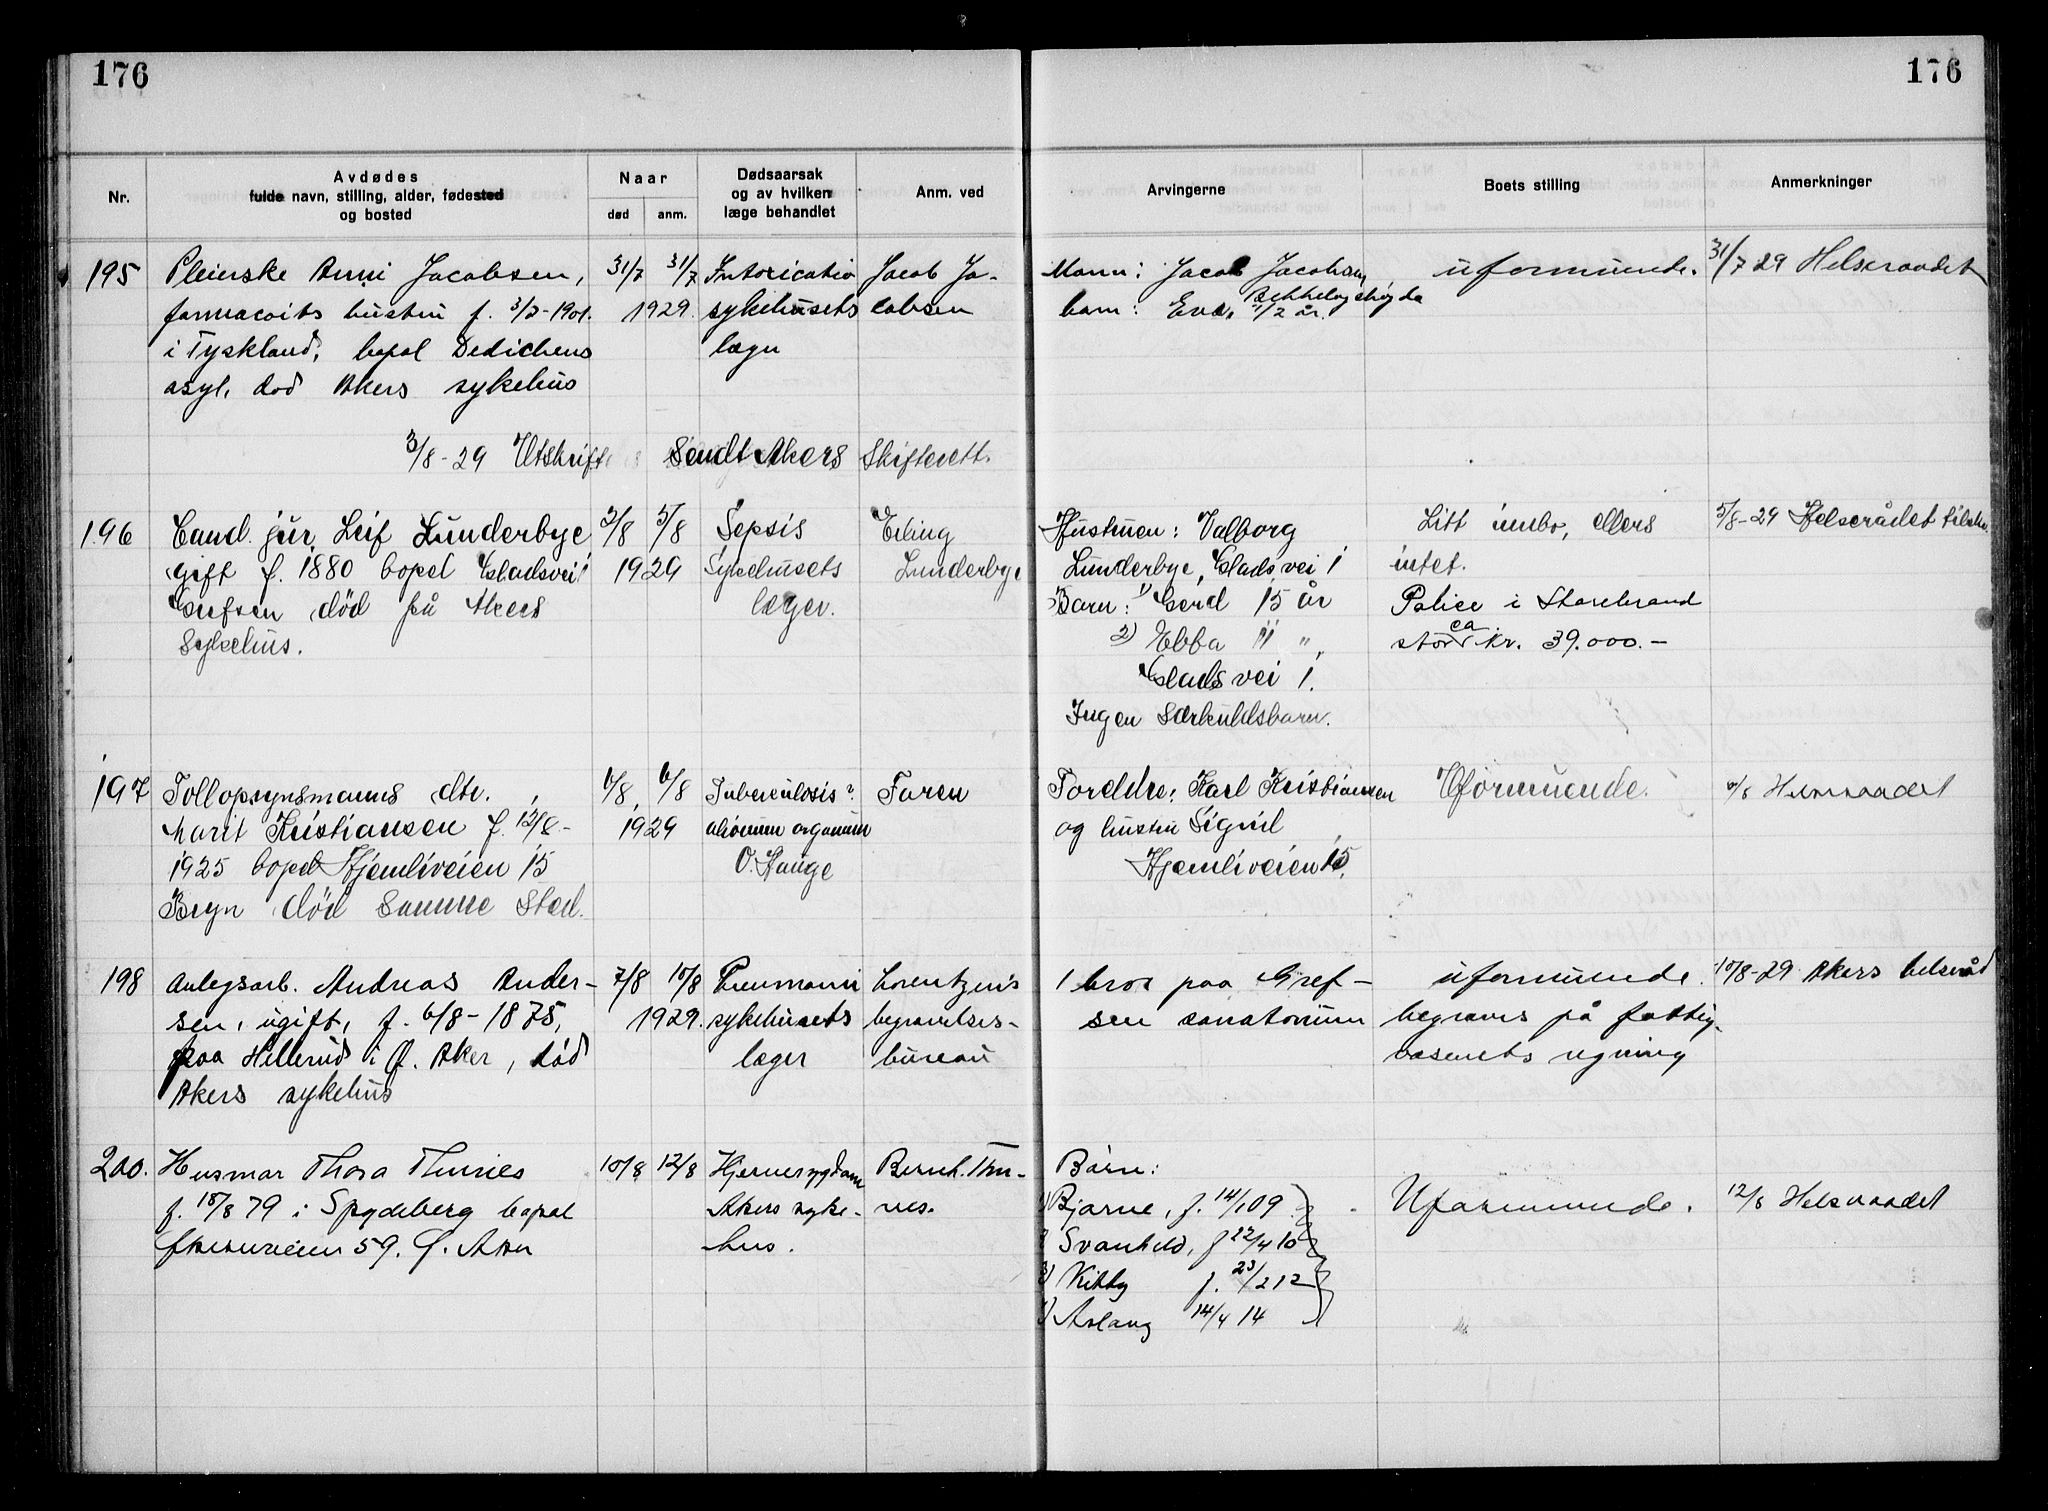 176
176
Nr.
Avdødes
fulde navn, stilling, alder, fødested
og bosted
Naar
død
anm.
Dødsaarsak
og av hvilken
læge behandlet
Anm. ved
Arvingerne
Boets stilling
Anmerkninger
195
Pleierske Anni Jacobsen,
farmacoits hustru f. 3/3-1901.
i Tyskland, bopæl Dedichens
asyl, død Akers sykehus
31/7 31/7
1929.
Intoxicatio
sykehusets
læge
Jacob Ja-
cobsen
Mann: Jacob Jacobsen
Bekkelagshøgda
barn: Eva, 1/2 år.
uformuende.
31/7 29 Helseraadet
3/8-29 Utskrift sendt Akers Skifterett.
196
Cand. jur Leif Lunderbye
gift f. 1880 bopel Gladsvei 1
Grefsen død på Akers
Sykehus.
3/8 5/8
1929
Sepsis
Sykehusets
læger.
Erling
Lunderbye
Hustruen: Valborg
Lunderbye, Gladsvei 1
Barn: 1) Gerd 15 år
2) Ebba 11 "
Gladsvei 1.
Ingen Særkuldsbarn.
Litt innbo, ellers
intet.
Police i Storebrand
stor ca kr. 39.000.-
5/8-29 Helserådet
197
Tollopsynsmanns dtr.
Marit Kristiansen f. 12/8-
1925 bopel Hjemliveien 15
Bryn død samme sted.
6/8 6/8
1929
Tuberculosis?
aliorum organum
O. Hauge
Faren
Foreldre: Karl Kristiansen
og hustru Sigrid
Hjemliveien 15.
Uformuende.
6/8 Helseraadet
198
Anlegsarb. Andreas Ander-
sen, ugift, f. 6/8-1875,
paa Hellerud i Ø. Aker, død
Akers sykehus
7/8 10/8
1929.
Pneumoni
sykehusets
læger
Lorentzen's
begravelses-
bureau
1 bror paa Gref-
sen sanatorium
uformuende.
begraves på fattig-
væsenets regning
10/8-29 Akers helseråd
200.
Husmor Thora Thunes
f. 18/8 79 i Spydeberg bopæl
59. Ø. Aker
10/8 12/8
Hjernesygdom
Akers syke-
hus.
Bernh. Thu-
nes.
Børn:
1) Bjarne, f. 14/1 09
2) Svanhild, f 22/4 10
3) Kitty f. 23/2 12
4) Aslaug 14/4 14
Uformuende.
12/8 Helseraadet